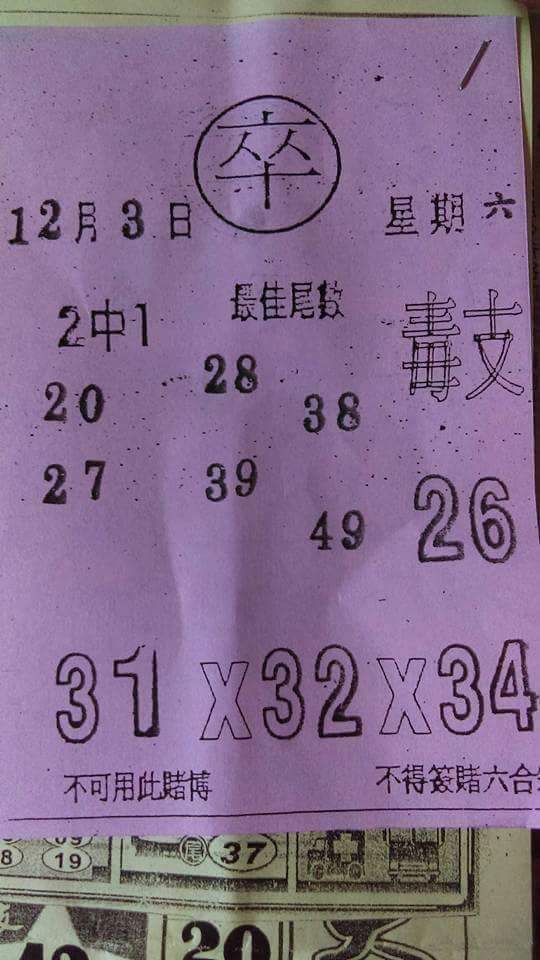 卒
12月3日 星期六
2中1 最佳尾數 毒支
20 28 38
27 39 49 26
31X32X34
不可用此賭博 不得簽賭六合
09
8 19 尾 37
20